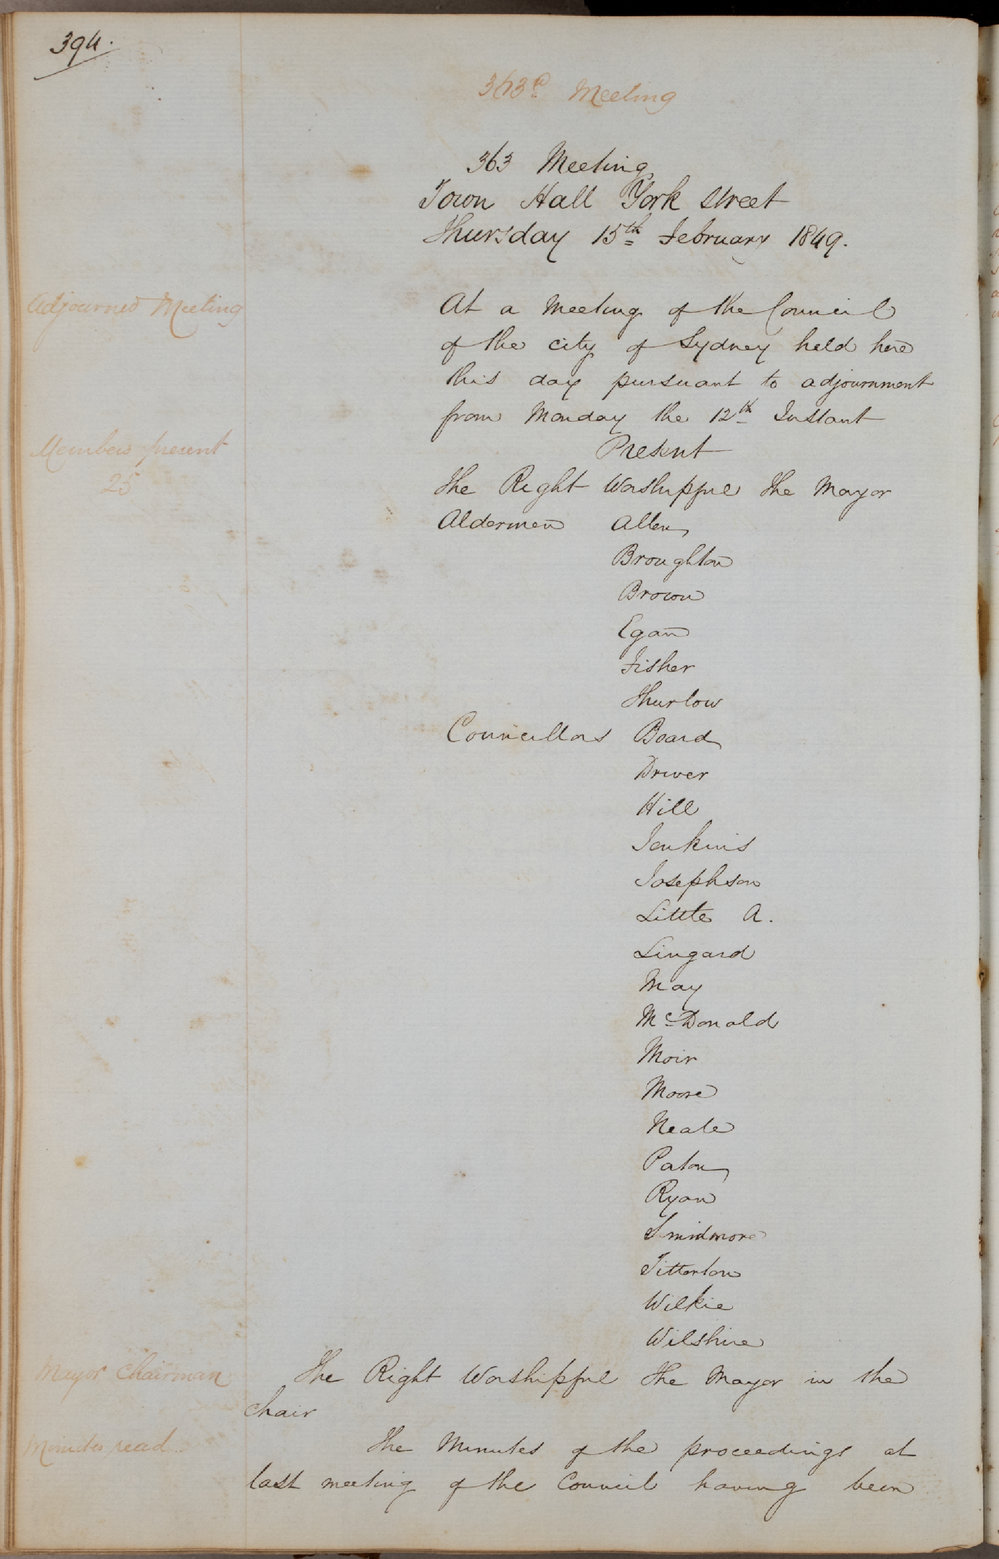 394.
363d Meeting
363 Meeting
Town Hall York Street
Thursday 15th February 1849.
Adjourned Meeting
At a Meeting of the Council
of the city of Sydney held here
this day pursuant to adjournment
from Monday the 12th Instant
Members present
25
Present
The Right Worshipful the Mayor
Aldermen Allen
Broughton
Brown
Egan
Fisher
Thurlow
Councillors Board
Driver
Hill
Jenkins
Josephson
Little A.
Lingard
May
McDonald
Moir
Moore
Neale
Paton
Ryan
Smidmore
Titterton
Wilkie
Wilshire
Mayor Chairman
The Right Worshipful the Mayor in the
chair
Minutes read
The Minutes of the proceedings at
last meeting of the Council having been